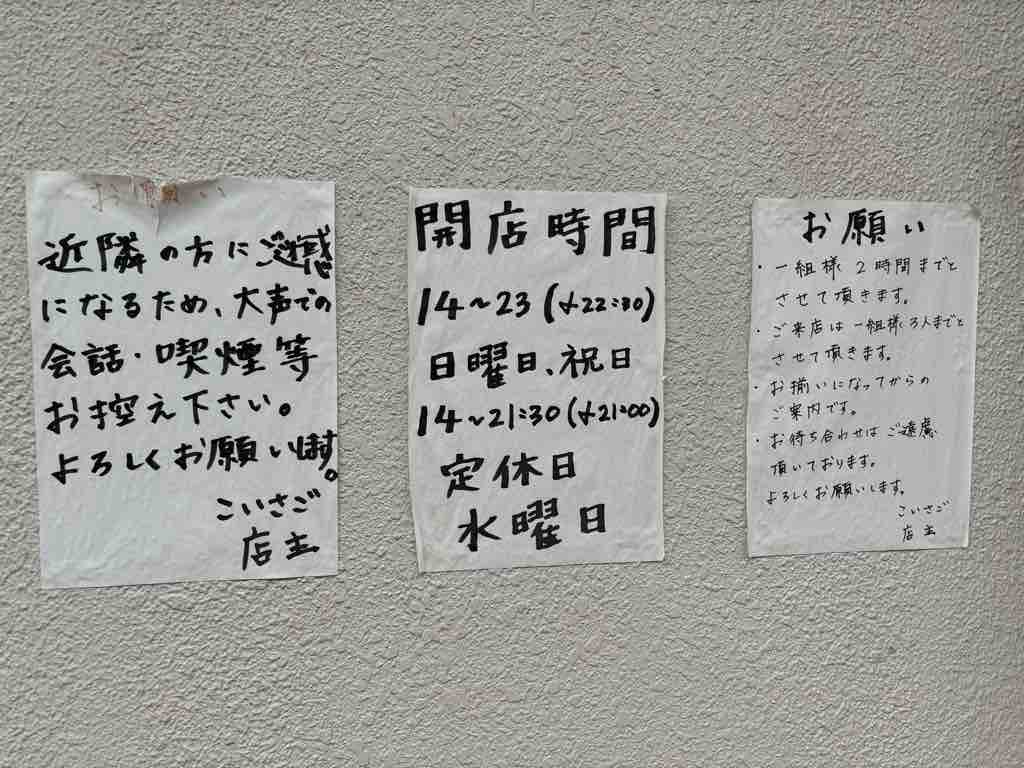 お願い
近隣の方にご迷惑
になるため、大声での
会話・喫煙等
お控え下さい。
よろしくお願いします。
こいさご
店主
開店時間
14~23(ℓo22:30)
日曜日、祝日
14~21:30(ℓo21:00)
定休日
水曜日
お願い
・一組様2時間までと
させて頂きます。
・ご来店は一組様3人までと
させて頂きます。
・お揃いになってからの
ご案内です。
・お待ち合わせはご遠慮
頂いております。
よろしくお願いします。
こいさご
店主